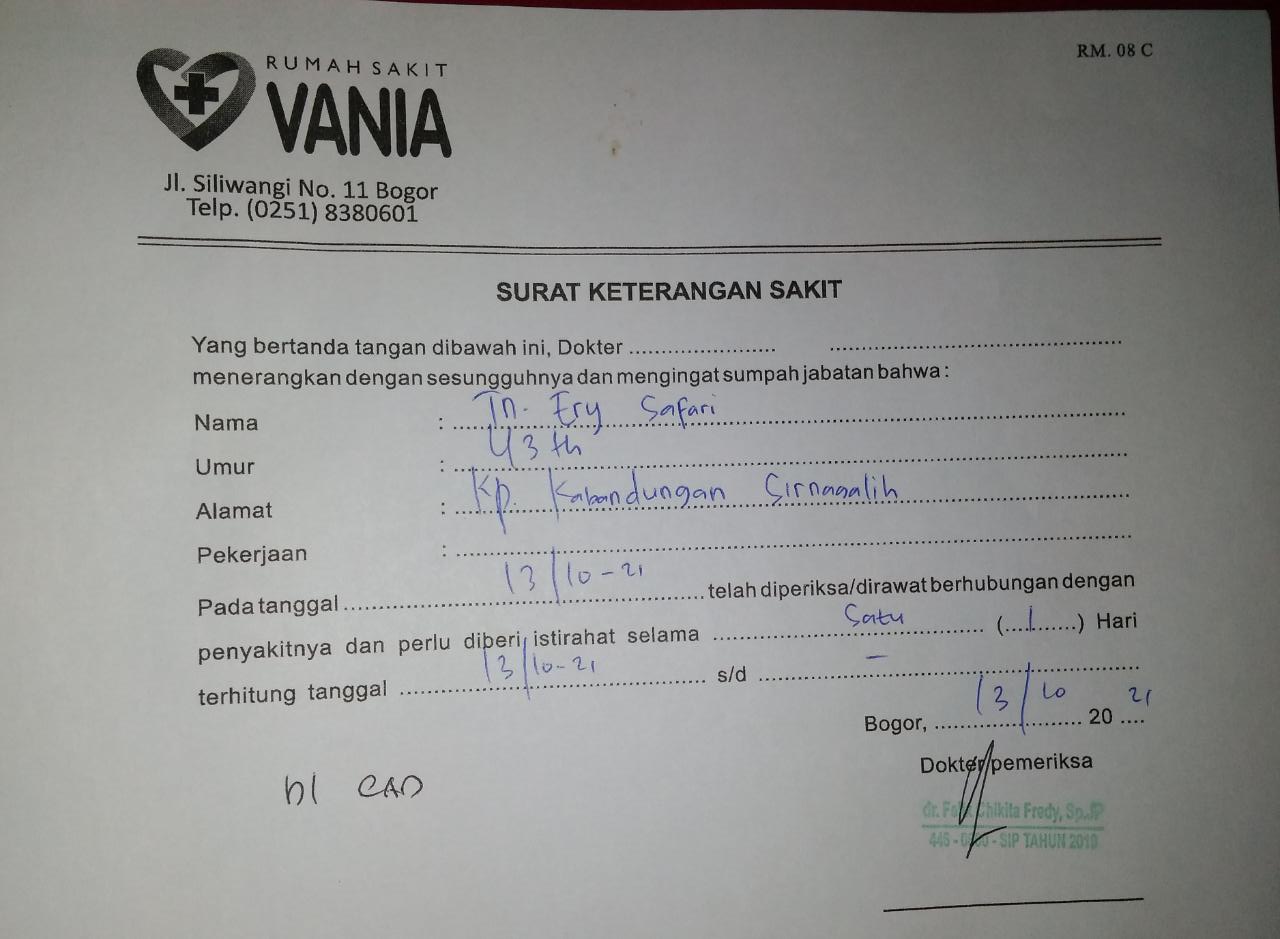 RM. 08 C
RUMAH SAKIT
VANIA
Jl. Siliwangi No. 11 Bogor
Telp. (0251) 8380601
SURAT KETERANGAN SAKIT
Yang bertanda tangan dibawah ini, Dokter ........................ ................................................
menerangkan dengan sesungguhnya dan mengingat sumpah jabatan bahwa :
Nama : Tn. Ery Safari
Umur : 43 th
Alamat : Kp. Kabandungan Sirnagalih
Pekerjaan : ................................................
Pada tanggal 13/10-21 telah diperiksa/dirawat berhubungan dengan
penyakitnya dan perlu diberi istirahat selama Satu (1) Hari
terhitung tanggal 13/10-21 s/d -
Bogor, 13/10 20 21
Dokter pemeriksa
CAD
dr. Chikita Fredy, Sp.JP
SIP TAHUN 2019